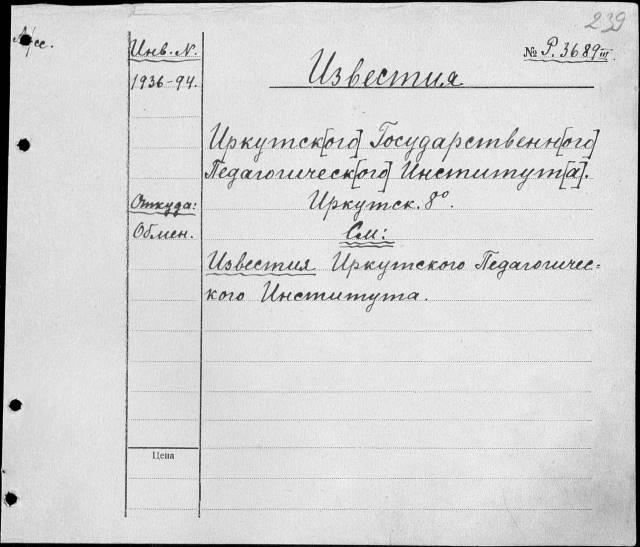 239
Инв. N.
№ Р. 3689 III.
1936-94.
Известия
Иркутск[ого] Государственн[ого]
Педагогическ[ого] Институт[а].
Откуда:
Иркутск. 8°.
Обмен.
См:
Известия Иркутского Педагогичес=
кого Института.
Цена